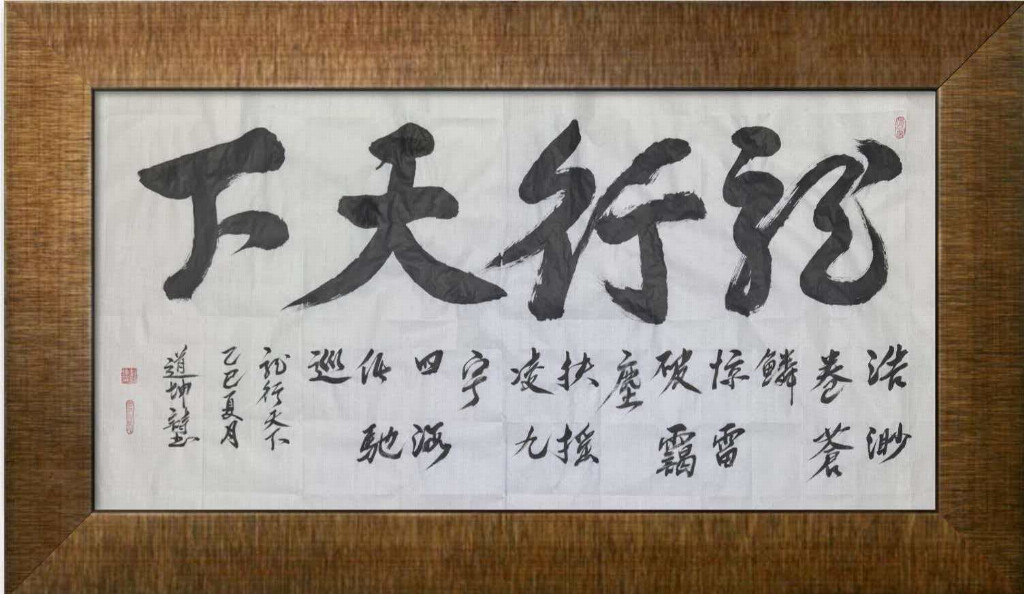 龍行天下
浩渺
卷蒼
鱗
惊雷
破靄
塵
扶摇
凌九
宇
四海
任馳
巡
龍行天下
乙巳夏月
道坤